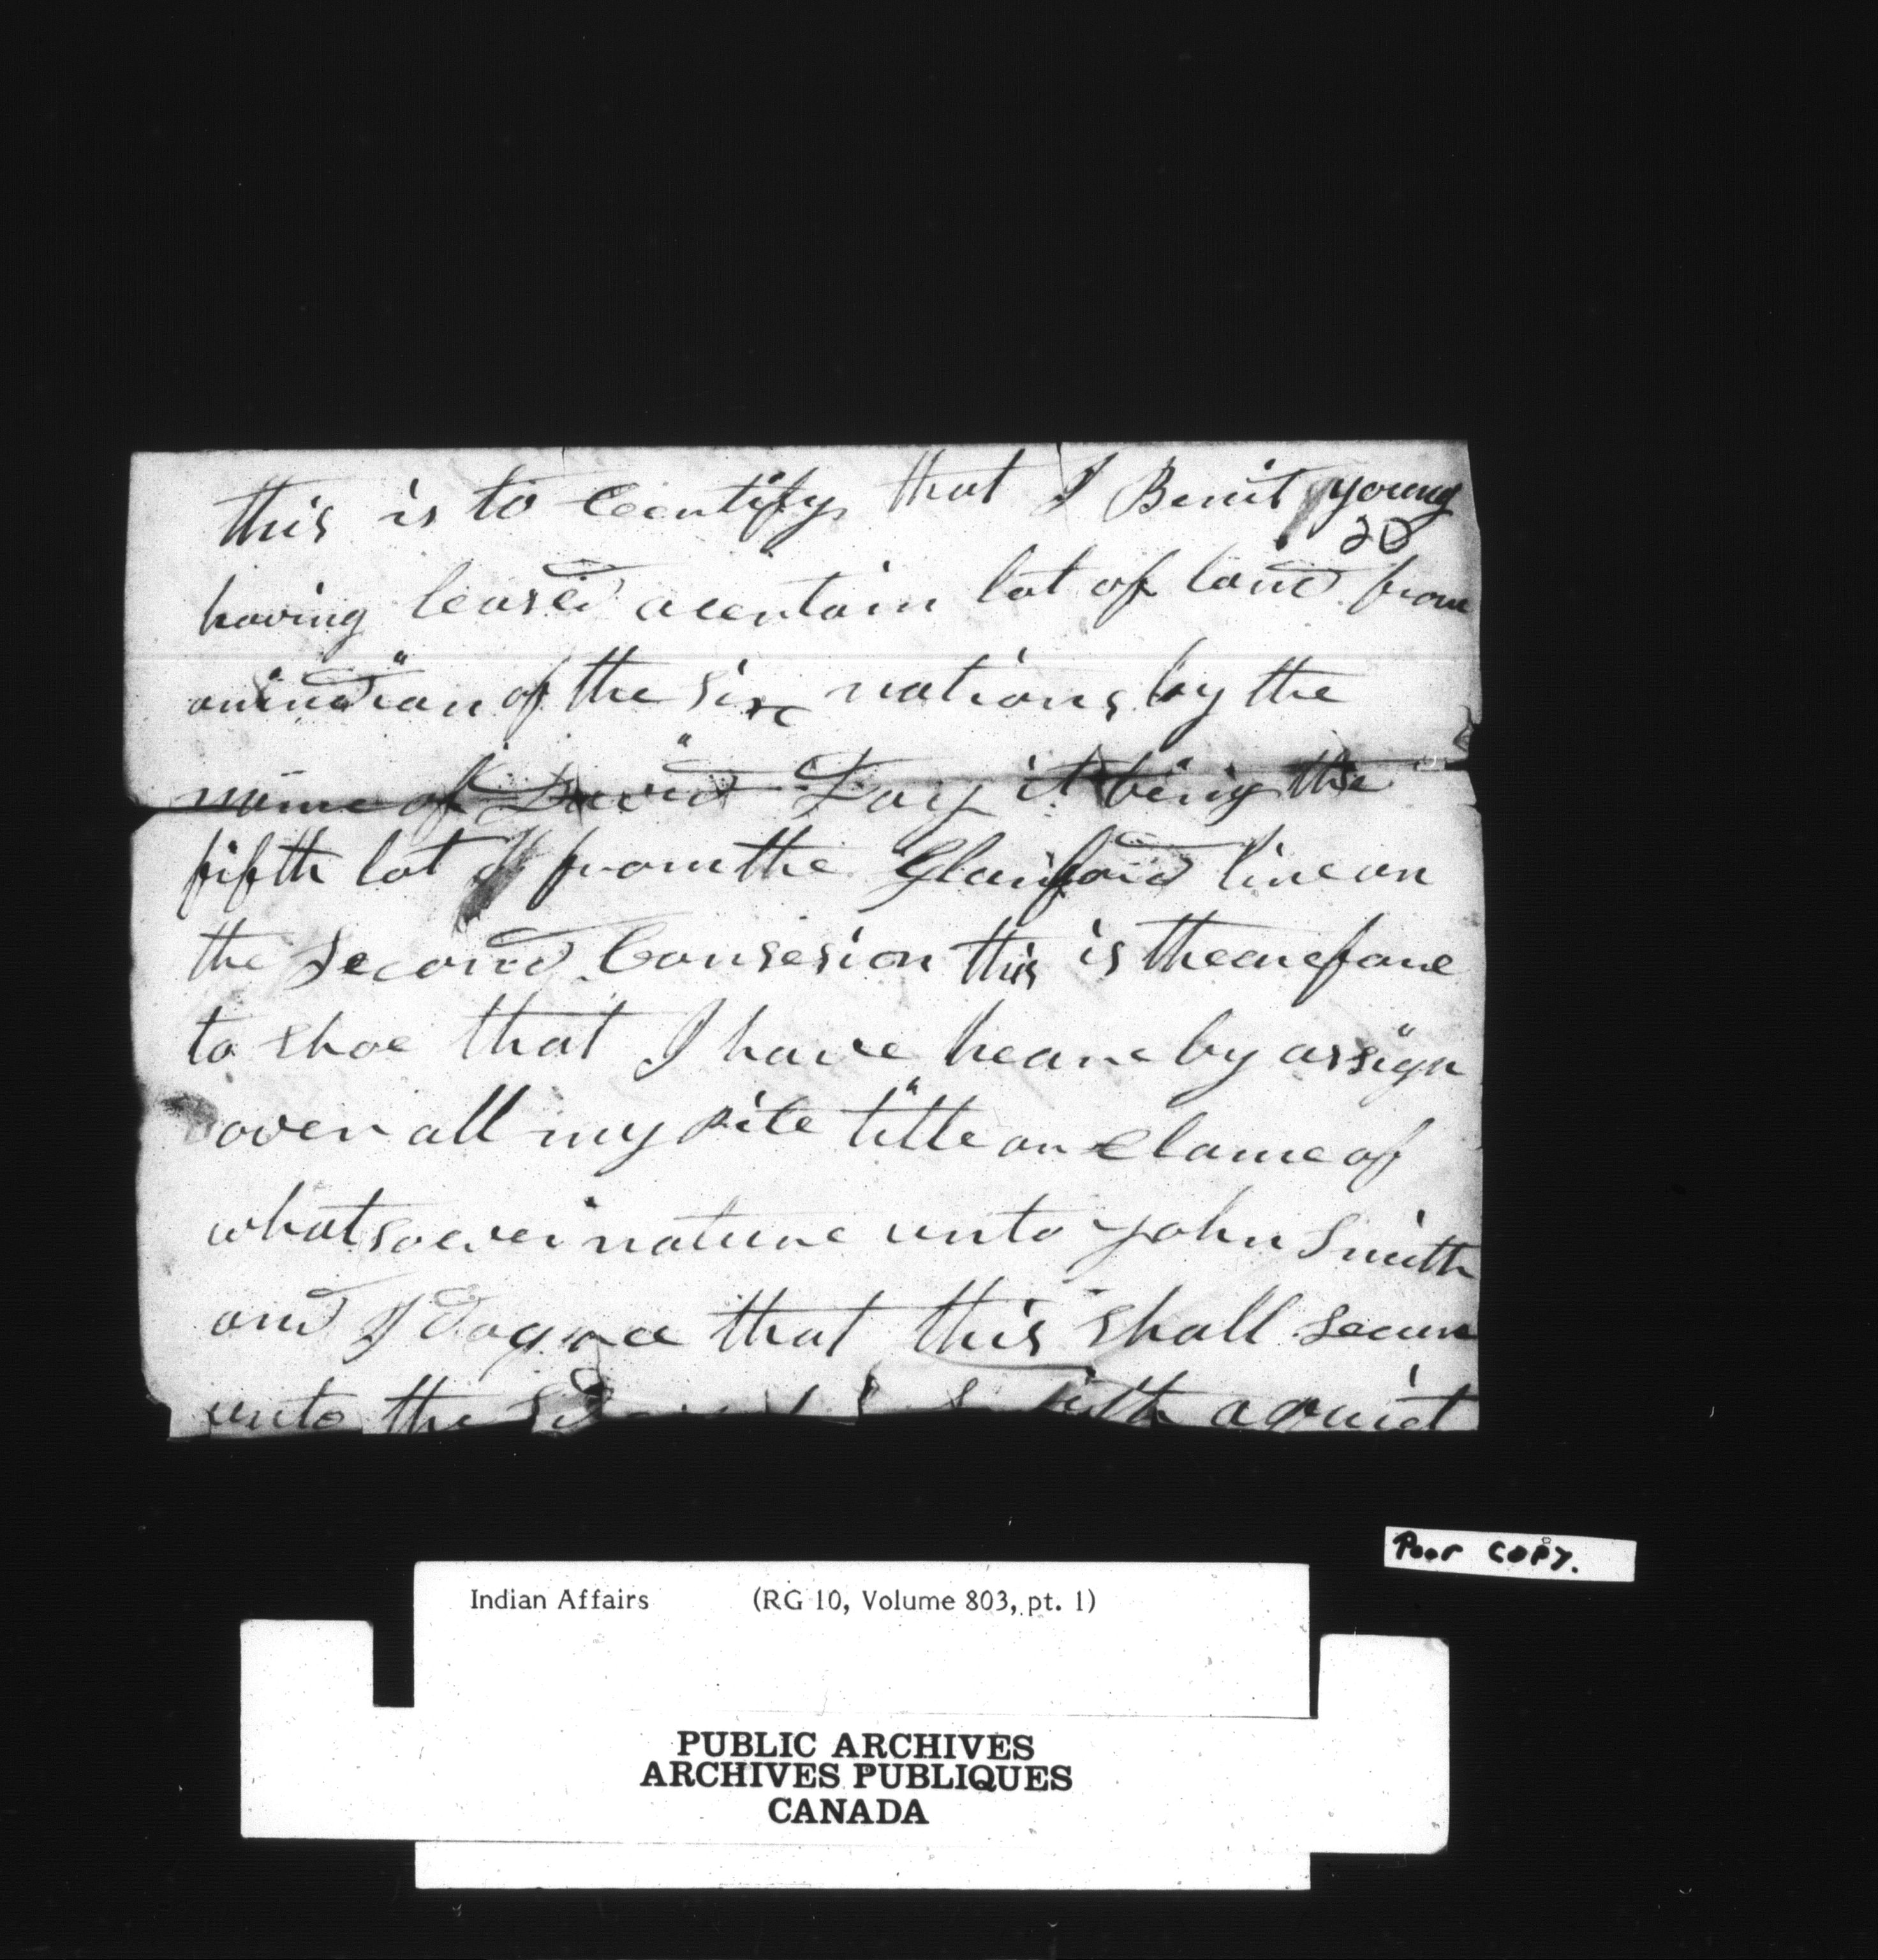 this is to Ceertify that I Benit young
20
having leased a certain lot of land from
an indian of the six nations by the
name of David Day it being the
fifth lot from the Glanford line on
the Second Consesion this is thearefore
to shoe that I have heare by assign
over all my rite title or clame of
whatsoever nature unto John Smith
and I do agree that this shall secure
unto the Smith against
Poor COPY.
Indian Affairs (RG 10, Volume 803, pt. 1)
PUBLIC ARCHIVES
ARCHIVES PUBLIQUES
CANADA